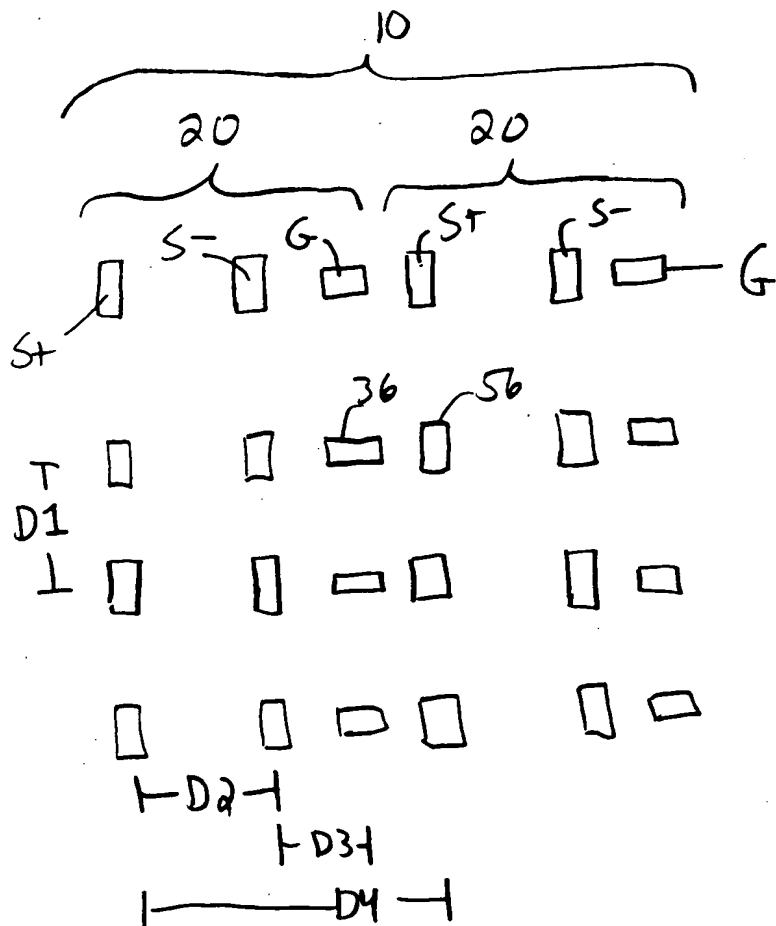 10
20 20
S+ S- G S+ S- G
36 56
D1
D2
D3
D4